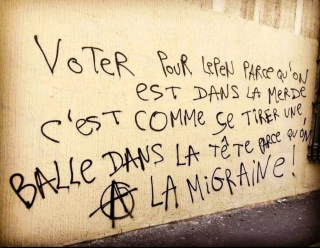 VOTER POUR LEPEN PARCE QU'ON
EST DANS LA MERDE
C'EST COMME SE TIRER UNE
BALLE DANS LA TÊTE PARCE QU'ON
A LA MIGRAINE !